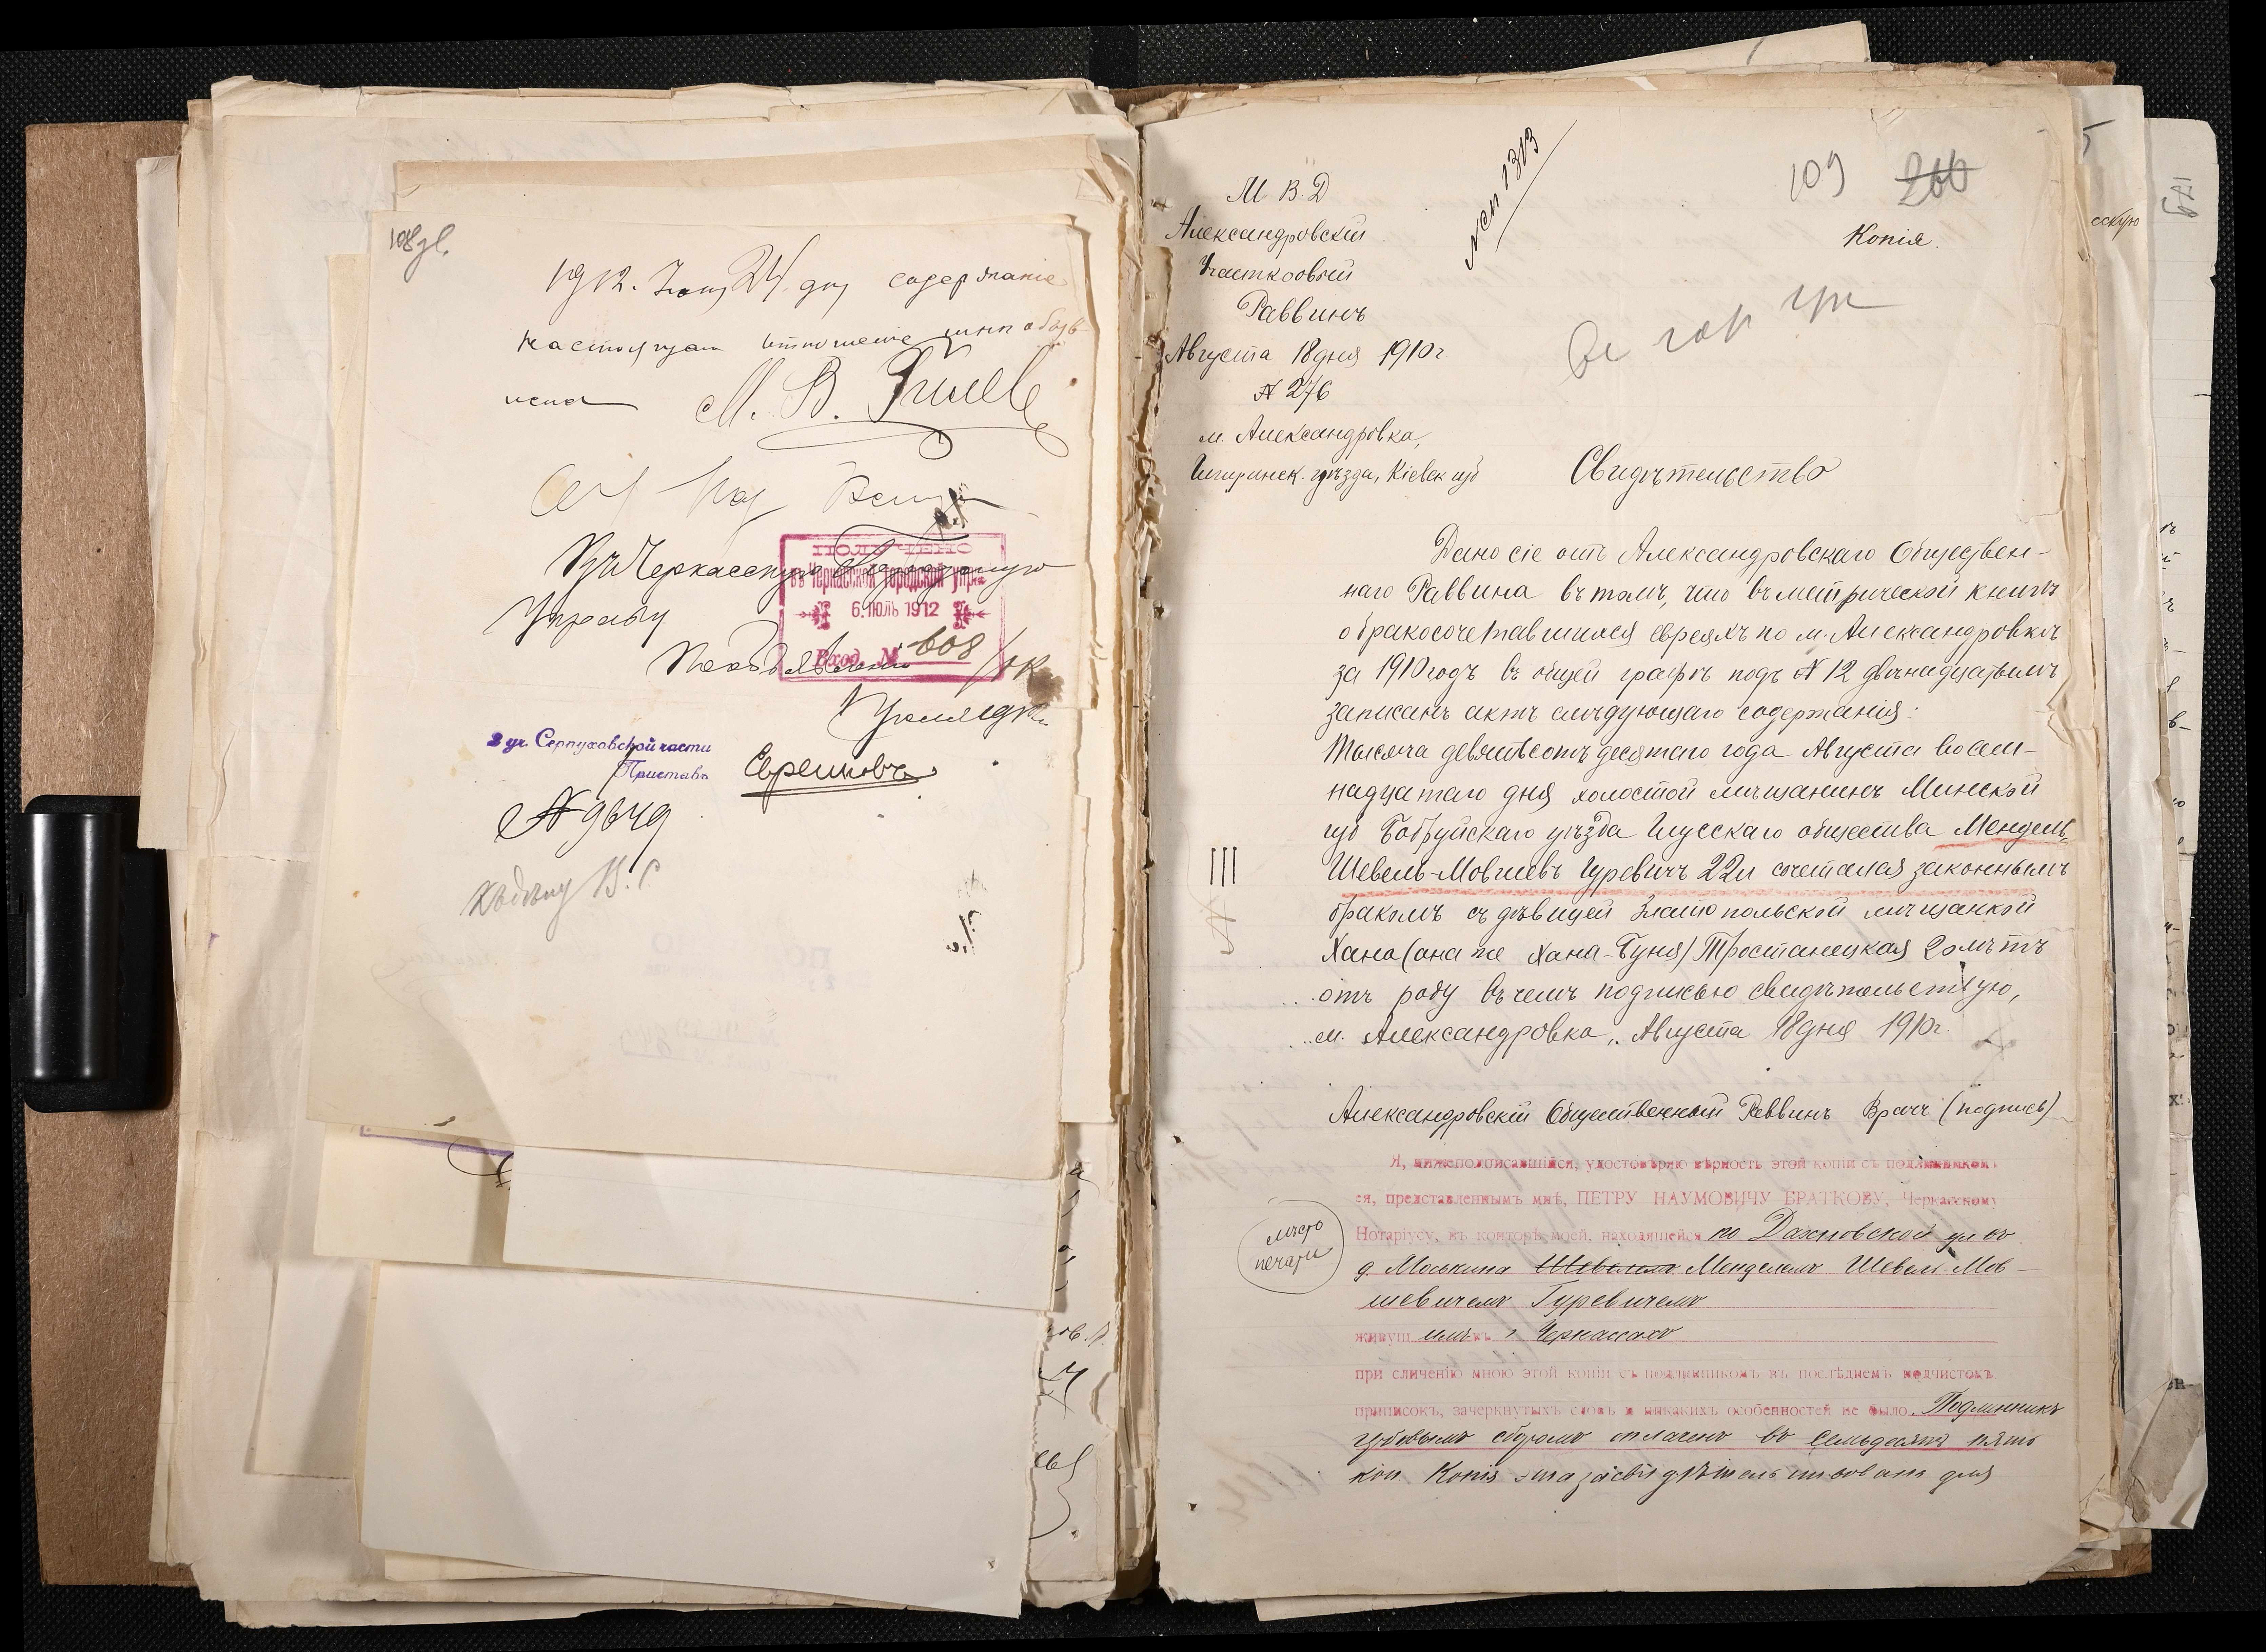 1912. Іюня 24 дня содержаніе
настоящаго отношенія мнѣ объяв-
лено М. В.
Въ Черкасскую Городскую
Управу
ПОЛУЧЕНО
въ Черкасской Городской Упр.
6. ІЮЛЬ 1912
Вход. № 608
По объявленіи
2 уч. Серпуховской части
Приставъ
№ 9849
109 200
Копія.
М В. Д
Александровскій
Участковый
Раввинъ
Августа 18 дня 1910 г
№ 276
м. Александровка,
Чигиринск. уѣзда, Кіевск губ
Свидѣтельство
Дано сіе отъ Александровскаго Обществен-
наго Раввина въ томъ, что въ метрической книгѣ
о бракосочетавшихся евреяхъ по м. Александровкѣ
за 1910 годъ въ общей графѣ подъ № 12 двѣнадцатымъ
записанъ актъ слѣдующаго содержанія:
Тысяча девятьсотъ десятаго года Августа восем-
надцатаго дня холостой мѣщанинъ Минской
губ Бобруйскаго уѣзда Глусскаго общества Мендель-
Шевель-Мовшевъ Гуревичъ 22 л сочетался законнымъ
бракомъ съ дѣвицей Златопольской мѣщанкой
Хана (она же Хана-Буня) Тростанецкая 20 лѣтъ
отъ роду въ чемъ подписью свидѣтельствую,
м. Александровка, Августа 18 дня 1910 г.
Александровскій Общественный Раввинъ Врачъ (подпись)
Я, нижеподписавшійся, удостовѣряю вѣрность этой копіи съ подлинникомъ
ея, представленнымъ мнѣ, ПЕТРУ НАУМОВИЧУ БРАТКОВУ, Черкасскому
Нотаріусу, въ конторѣ моей, находящейся по Дахновской ул въ
мѣсто
печати
д. Моськина Менделемъ Шевел-Мов-
шевичемъ Гуревичемъ
живущимъ въ г. Черкассахъ
при сличеніи мною этой копіи съ подлинникомъ въ послѣднемъ подчистокъ,
приписокъ, зачеркнутыхъ словъ и никакихъ особенностей не было. Подлинникъ
гербовымъ сборомъ оплаченъ въ семьдесятъ пять
коп. Копія эта засвидѣтельствована для